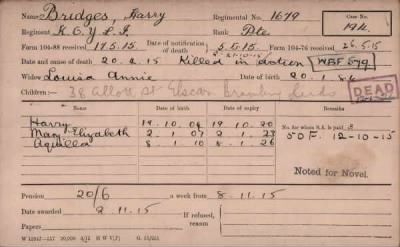 Name Bridges, Harry Regimental No. 1679 Case No.
Regiment K.O.Y.L.I. Rank Pte 194.
Form 104-88 received 17.5.15 Date of notification of death 5.5.15 Form 104-76 received 26.5.15
Date and cause of death Killed in Action WBF 579
Widow Louisa Annie Date of birth 20.1.86
Children:— St Elscar Leeds DEAD
Names Date of birth Date of expiry Remarks
Harry 19.10.04 19.10.20 No. for whom S.A. is paid 3
Mary Elizabeth 2.1.07 2.1.23 50F. 12-10-15
Aquilla 8.1.10 8.1.26
Noted for Novel.
Pension 20/6 a week from 8.11.15
Date awarded 2.11.15 If refused, reason
Papers